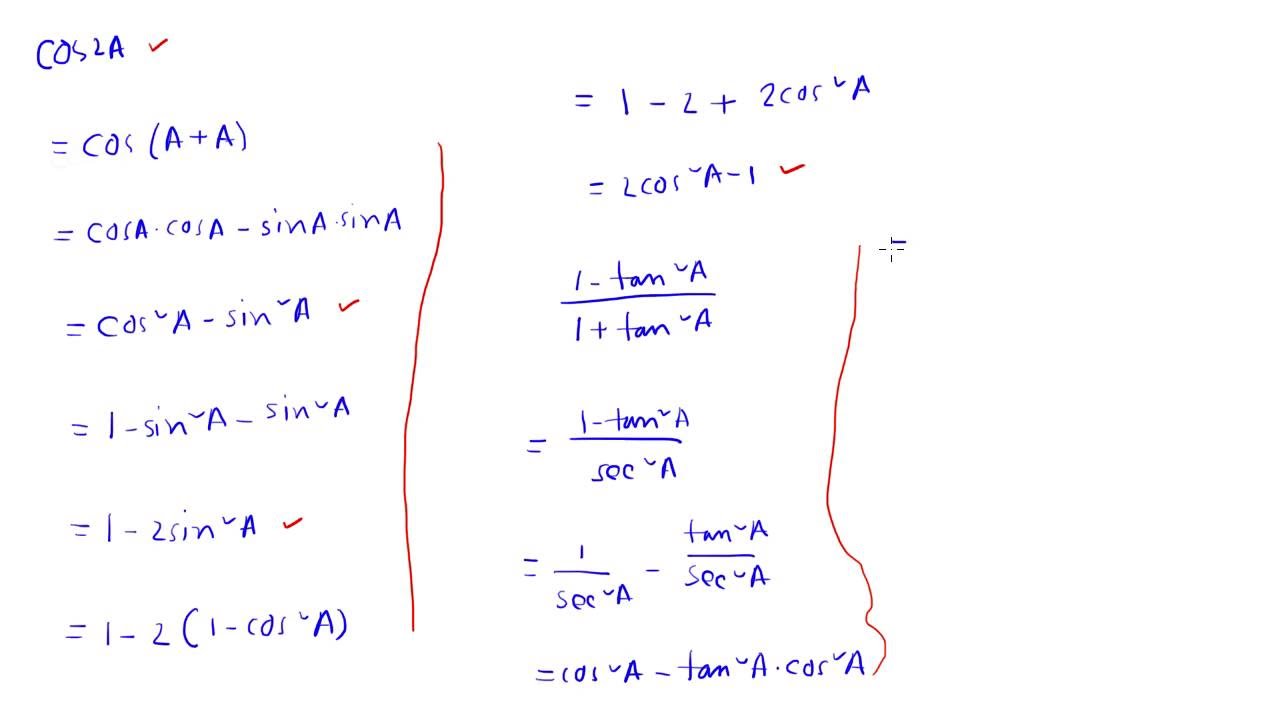 cos2A ✓
= cos (A + A)
= cosA · cosA - sinA · sinA
= cos²A - sin²A ✓
= 1 - sin²A - sin²A
= 1 - 2sin²A ✓
= 1 - 2 (1 - cos²A)
= 1 - 2 + 2cos²A
= 2cos²A - 1 ✓
1 - tan²A
1 + tan²A
= 1 - tan²A
sec²A
= 1/sec²A - tan²A/sec²A
= cos²A - tan²A · cos²A